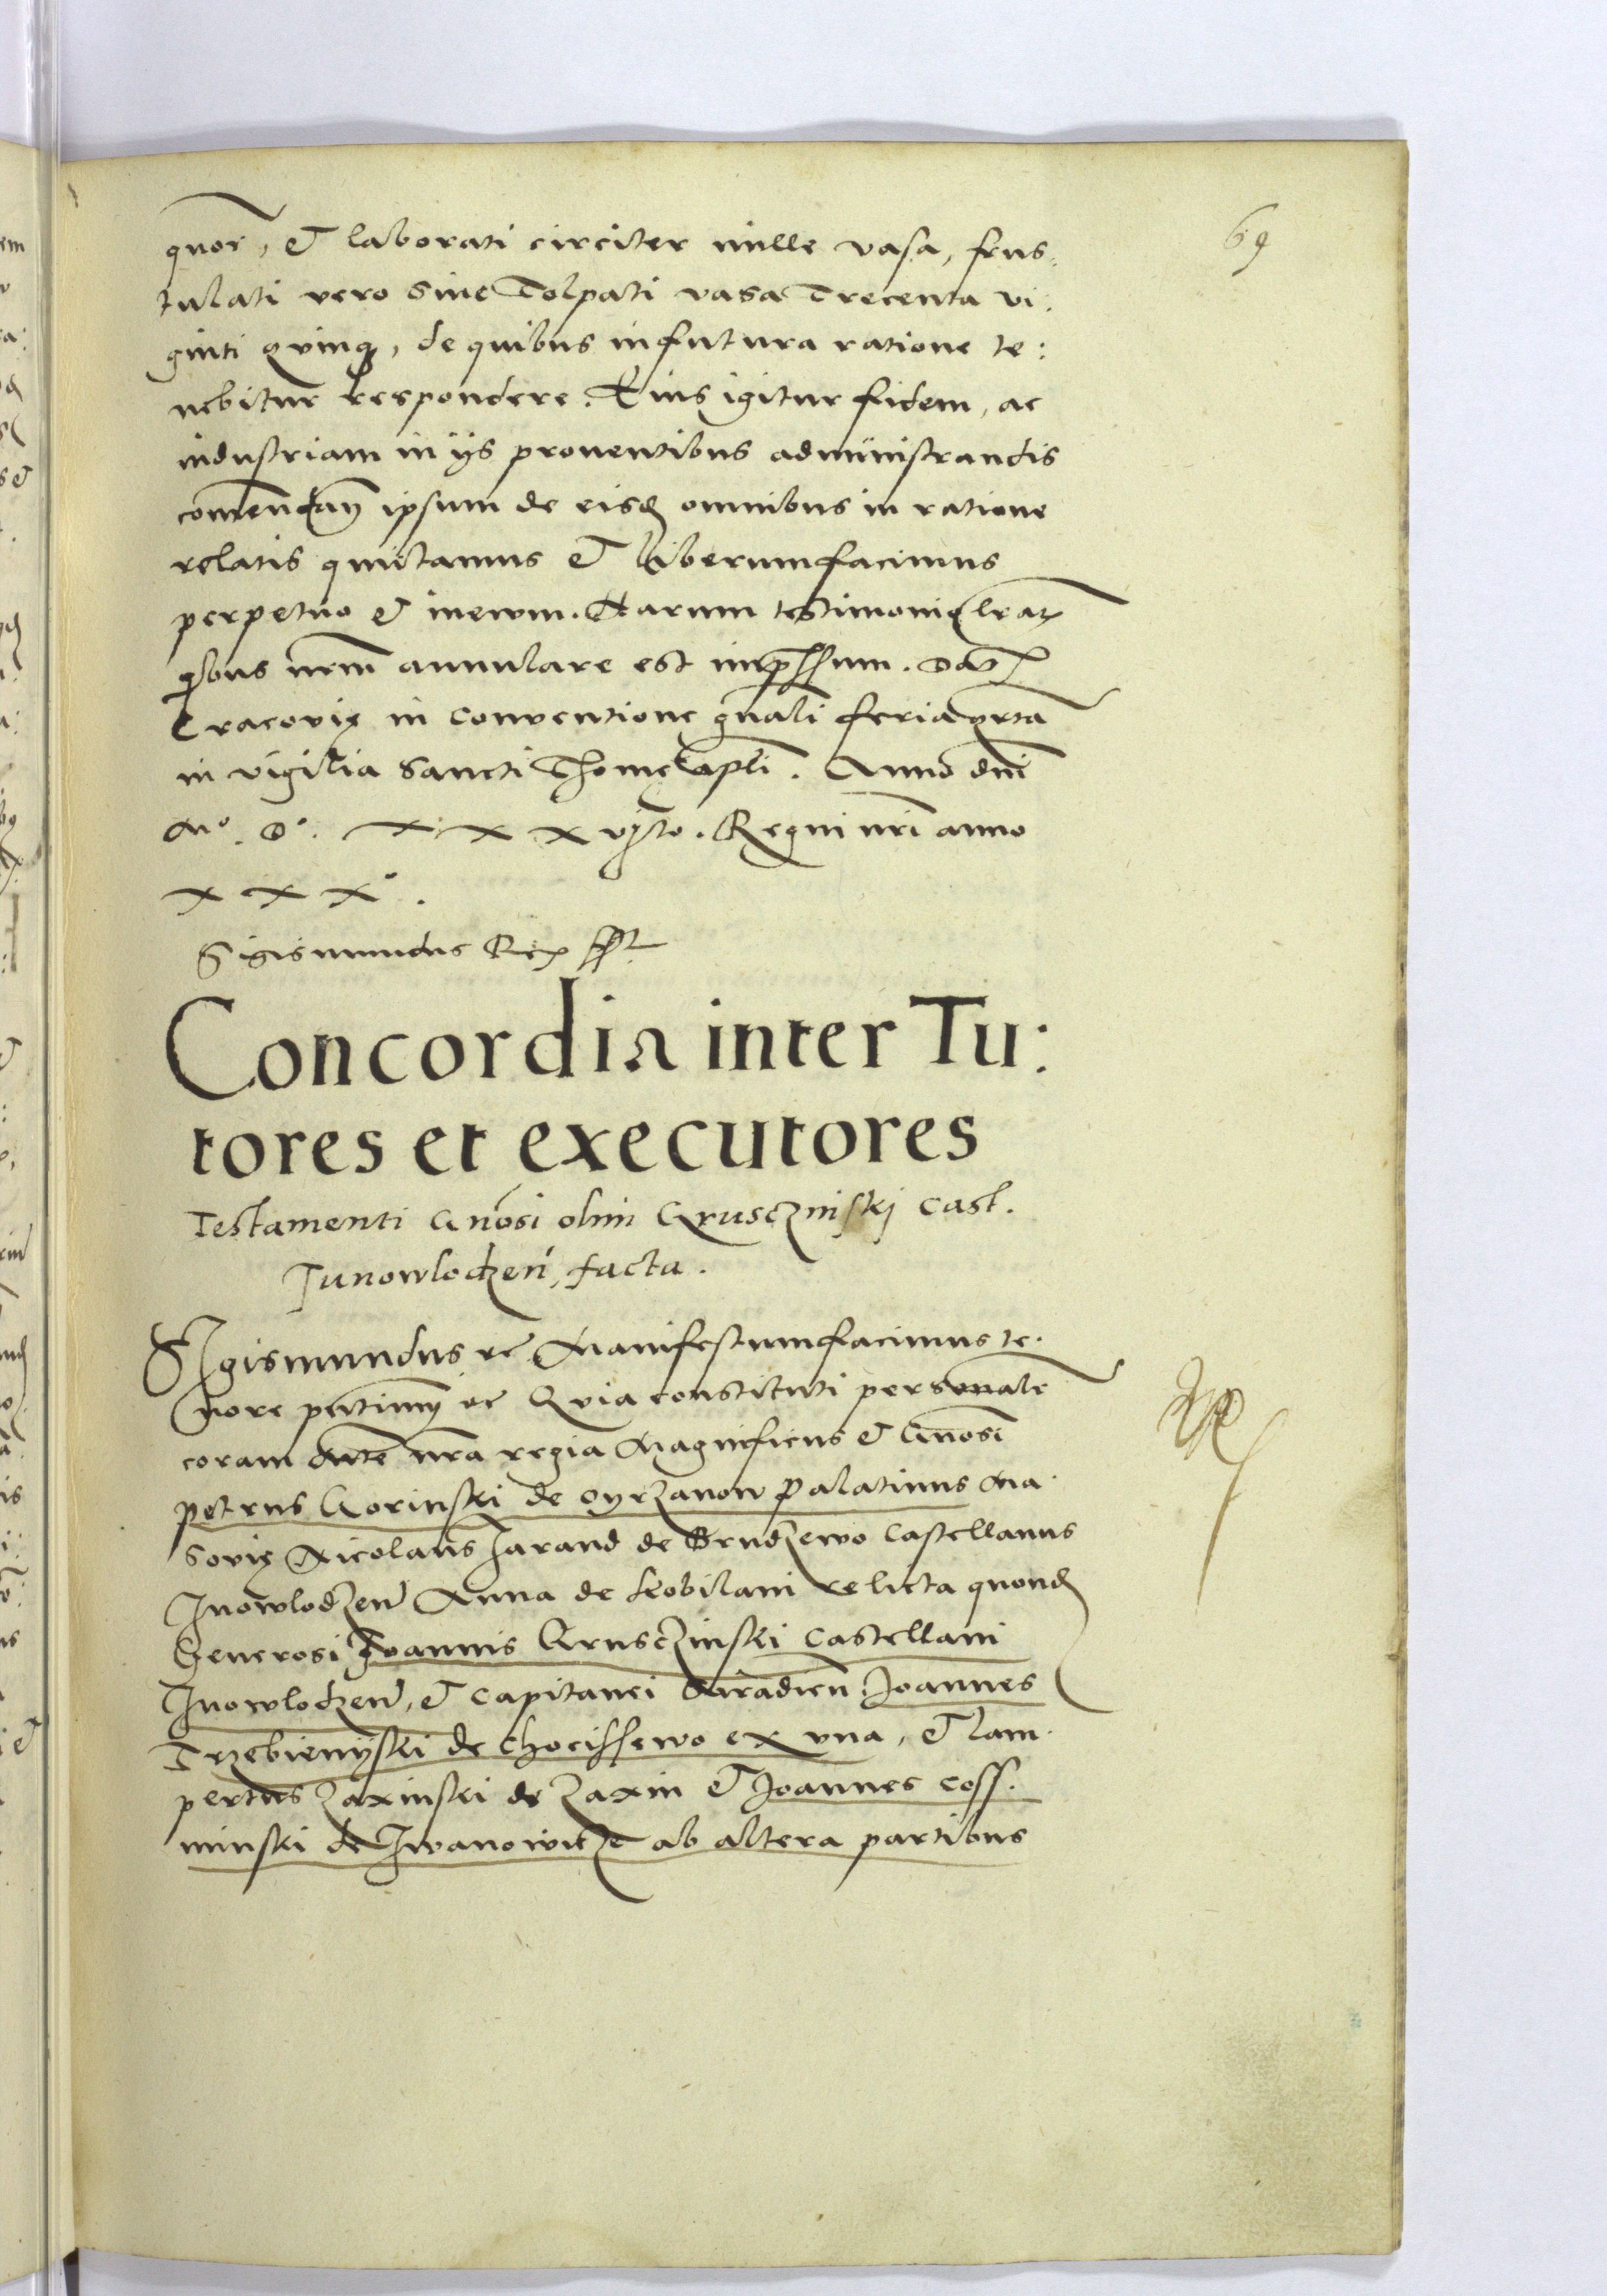 69
quor, et laborati circiter mille vasa, frus:
tulati vero sive Tolpati vasa Trecenta vi:
ginti quinq, de quibus in futura ratione te:
nebitur respondere. Eius igitur fidem, ac
industriam in ijs proventibus administrandis
comendan ipsum de eisd omnibus in ratione
relatis quittamus et liberum facimus
perpetuo et inewm. Harum testimonio lrar
qbus nrm annulare est impssum. Dat
Cracovię in conventione gnali feria qrta
in vigilia Sancti Thomę apli. Anno dni
Mo. Do. xxxvjto. Regni nri anno
xxxo.
Sigismundus Rex sst
Concordia inter Tu:
tores et executores
Testamenti Gnosi olim Grusczinskj Cast.
Junowlodzen, facta.
SIgismundus rc Manifestum facimus te.
nore pntium rc Quia constituti personale
coram Mte nra regia Magnificus et Gnosi
petrus Gorinski de oyrzanow Palatinus Ma.
Sovię Nicolaus Jarand de Brudzewo Castellanus
Jnowlodzen Anna de Kobilani relicta quond
Generosi Joannis Grusczinski Castellani
Jnowlodzen, et Capitanei Siradien Joannes
Trzebienyski de Chocissewo ex una, et Lam.
pertus Zaxinski de Zaxin et Joannes Coss.
minski de Jwanowicze ab altera partibus